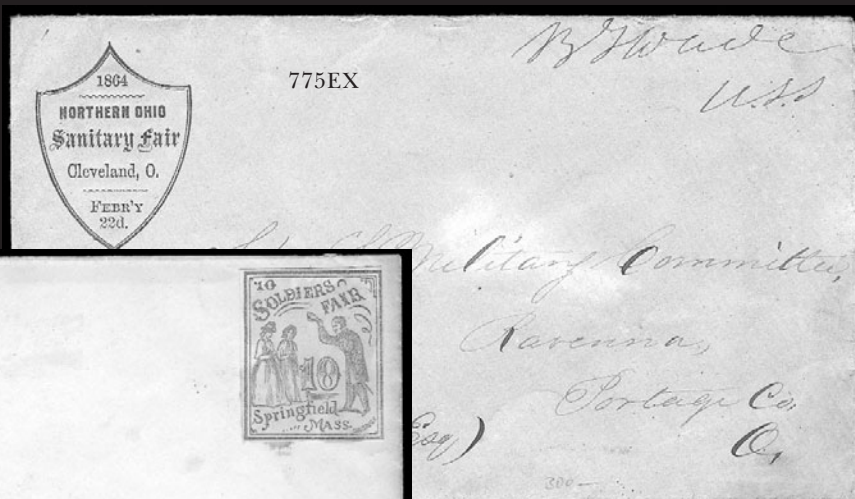 1864
NORTHERN OHIO
Sanitary Fair
Cleveland, O.
FEBR'Y
22d.
775EX
B F Wade
U.S.S
Military Committee,
Ravenna,
Portage Co.
Esq)
O,
300—
10
SOLDIERS
FAIR
10
Springfield
MASS.